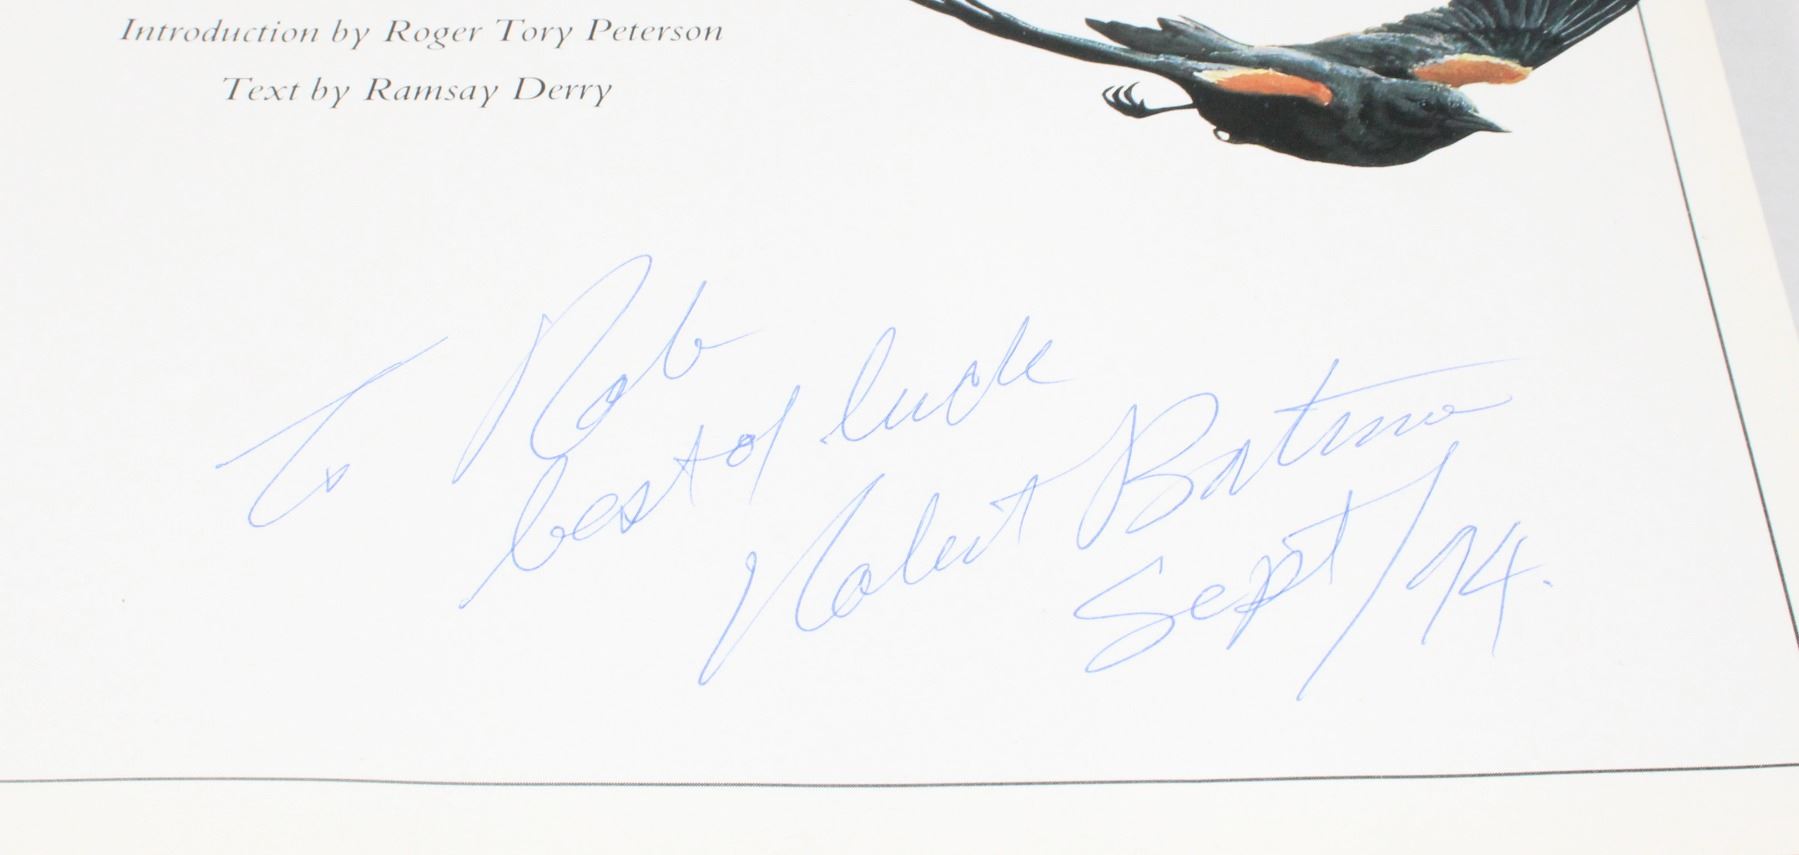 Introduction by Roger Tory Peterson
Text by Ramsay Derry
To Rob
best of luck
Robert Bateman
Sept/94.